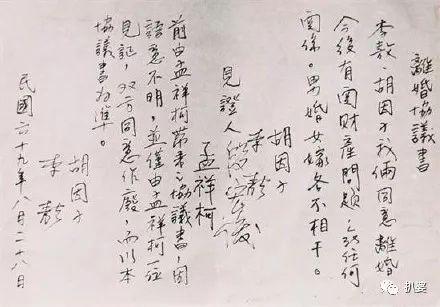 離婚協議書
李敖、胡因子我倆同意離婚
今後有関財產問題，任何
関係。男婚女嫁各不相干。
胡因子
李敖
見證人
孟祥柯
前由孟祥柯帶来之協議書，因
語意不明，並僅由孟祥柯一位
見証，双方同意作廢，而以本
協議書為準。
胡因子
李敖
民國六十九年八月二十八日